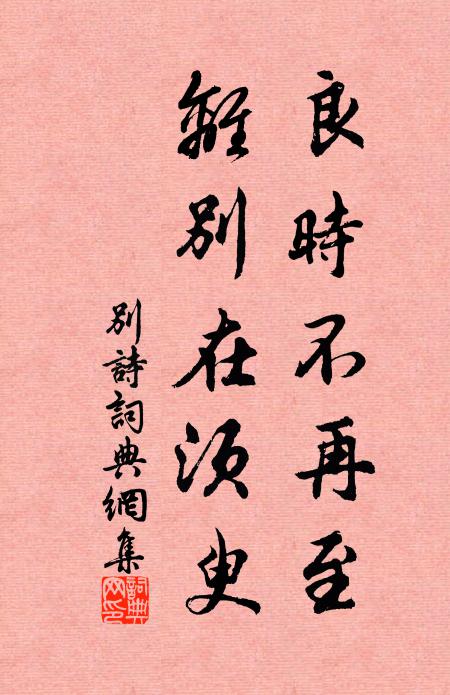 良時不再至
離別在須臾
別詩詞典網集
詞典
网印